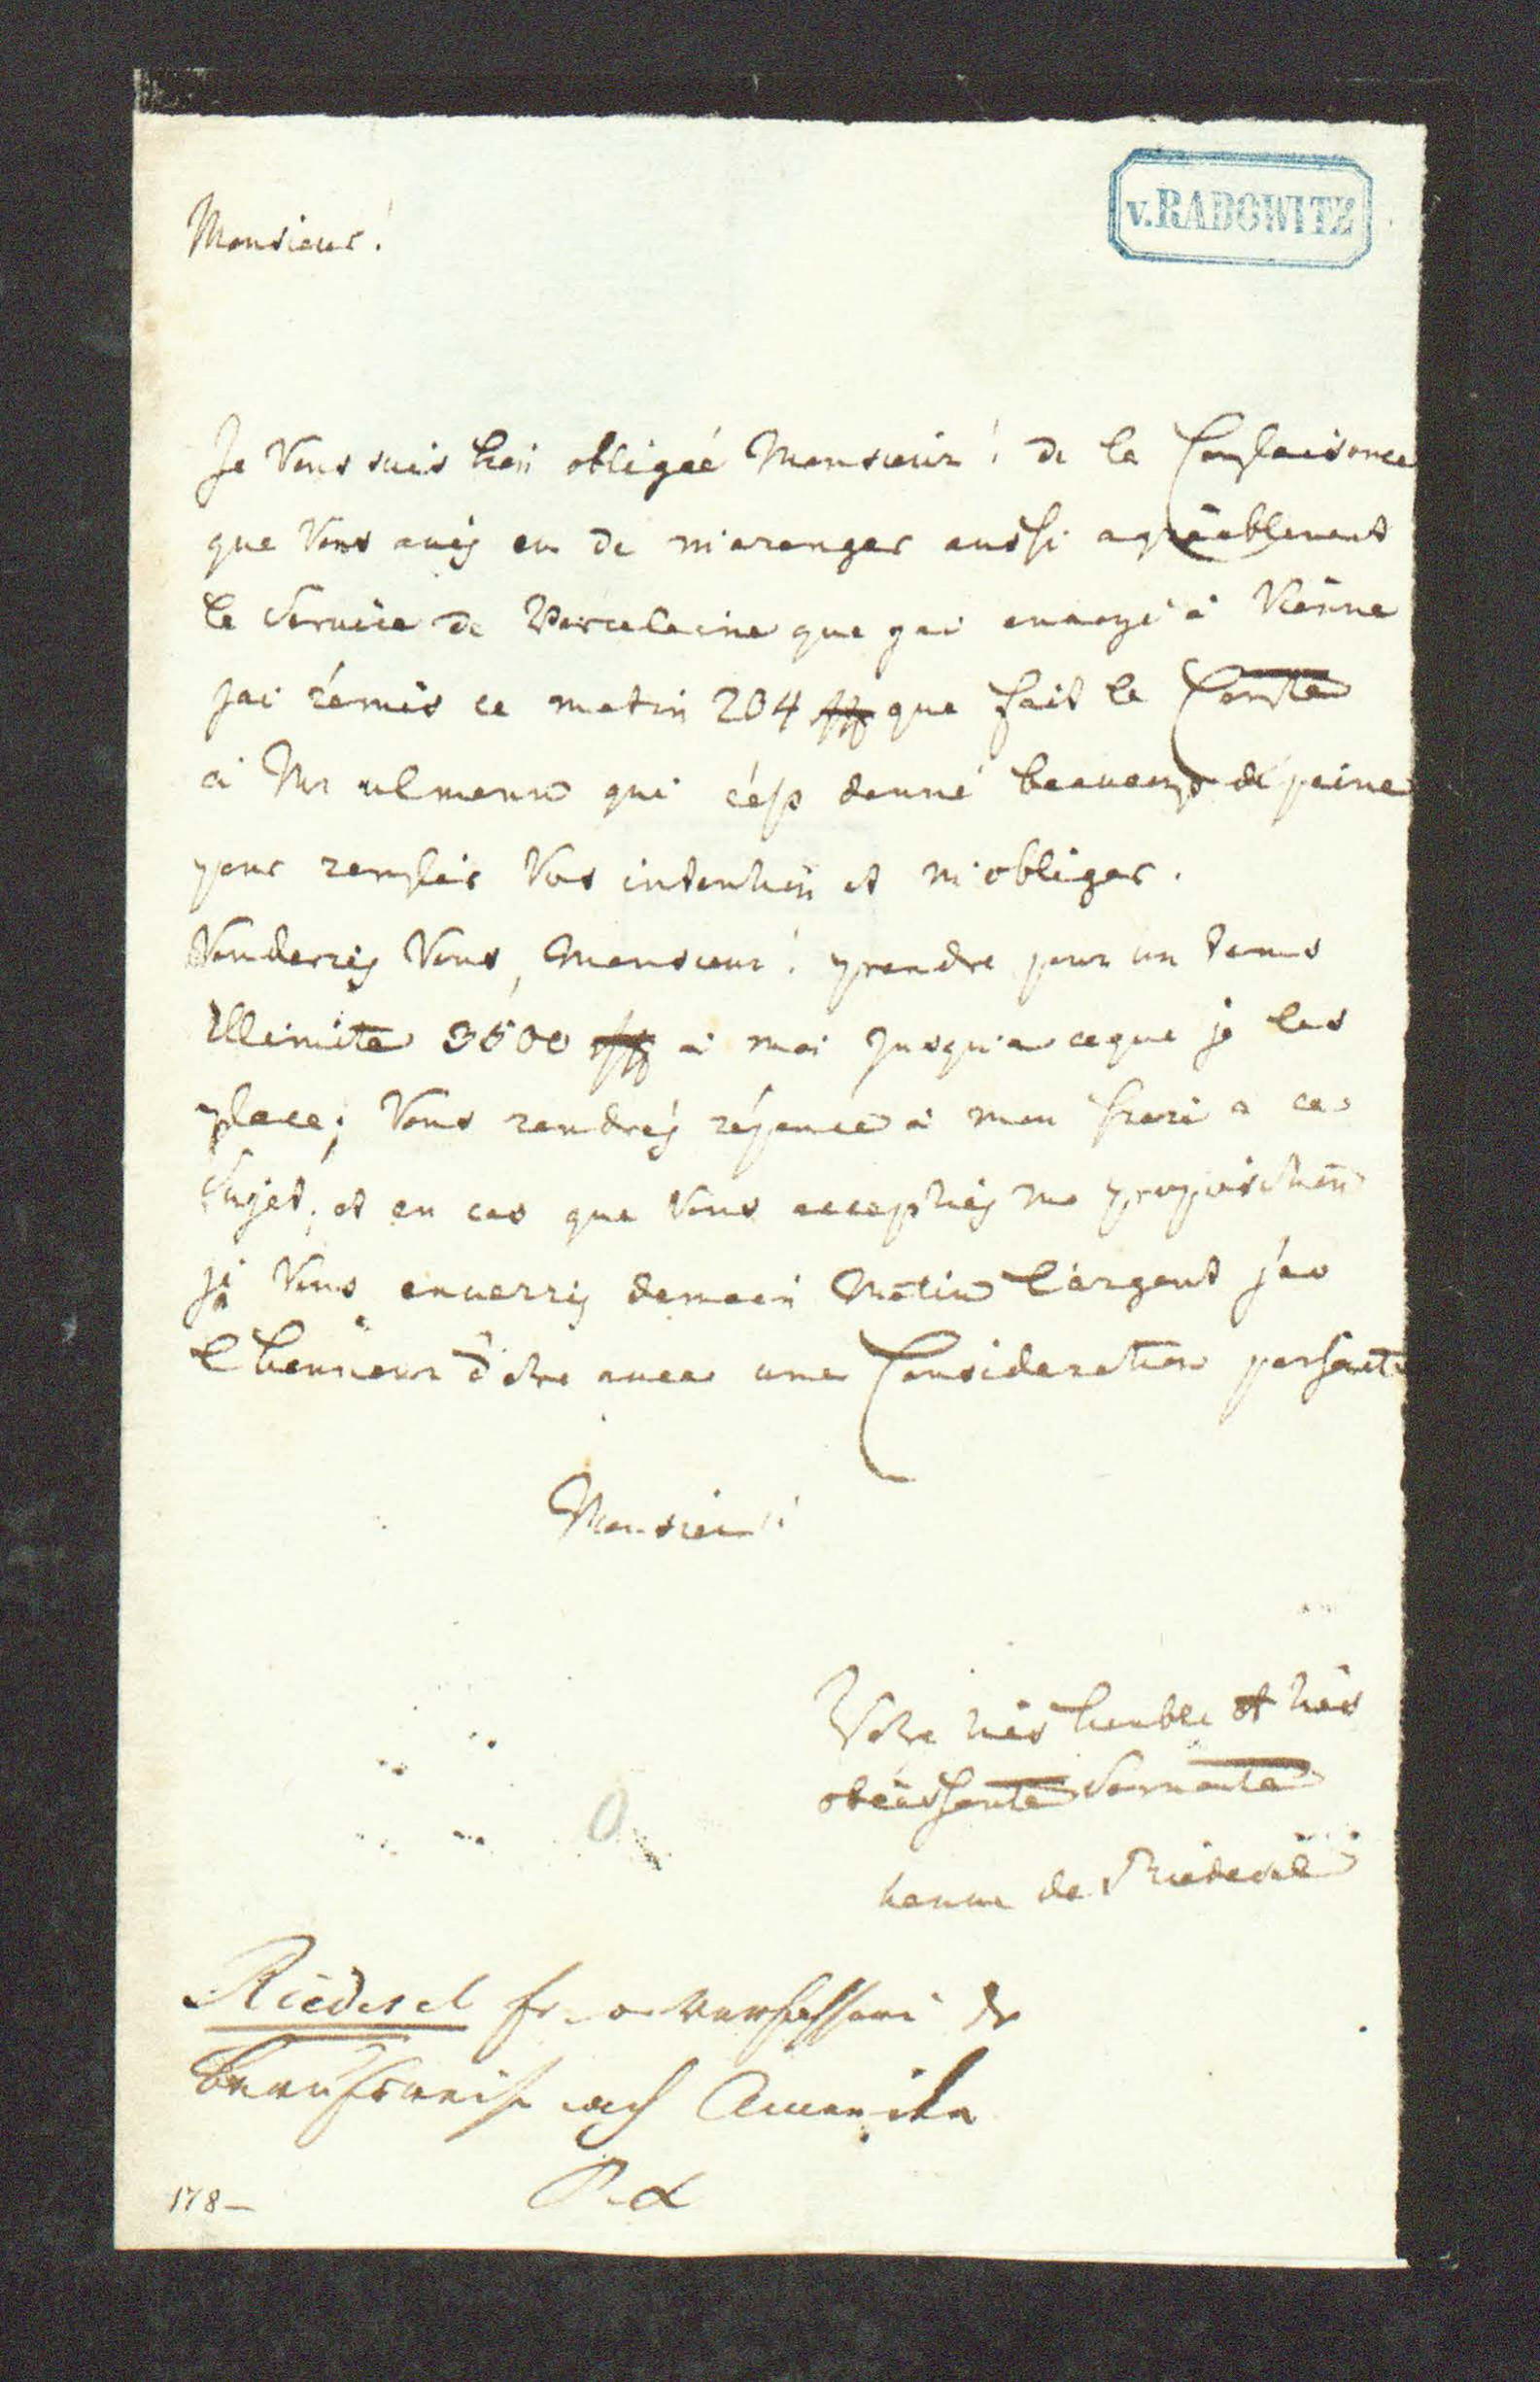 v. RADOWITZ
Monsieur!
Je Vous suis bien obligéé Monsieur! de la Complaisance
que Vous avés eu de m'aranger aussi agréablement
le Service de Porcelaine que j'ai envoyé à Viénne
jai rémis ce matin 204 que fait le Compte
à Mr ulmann qui c'est donné beaucoup de peine
pour remplir Vos intention et m'obliger.
Vouderiés Vous, Monsieur! prendre pour un tems
Illimite 3500 à moi jusqu'a ceque je les
place; Vous rendrés réponce à mon frere a ce
Sujet; et en cas que Vous acceptiés ma proposition
je Vous enverris demain Matin l'argent j'ao
l'honneur d'etre avec une Consideration parfaite
Monsieur!
Votre très humble et très
obéissante Servante
de Riedesel
Riedesel Verfasserin der
Berufsreise nach Amerika
178-